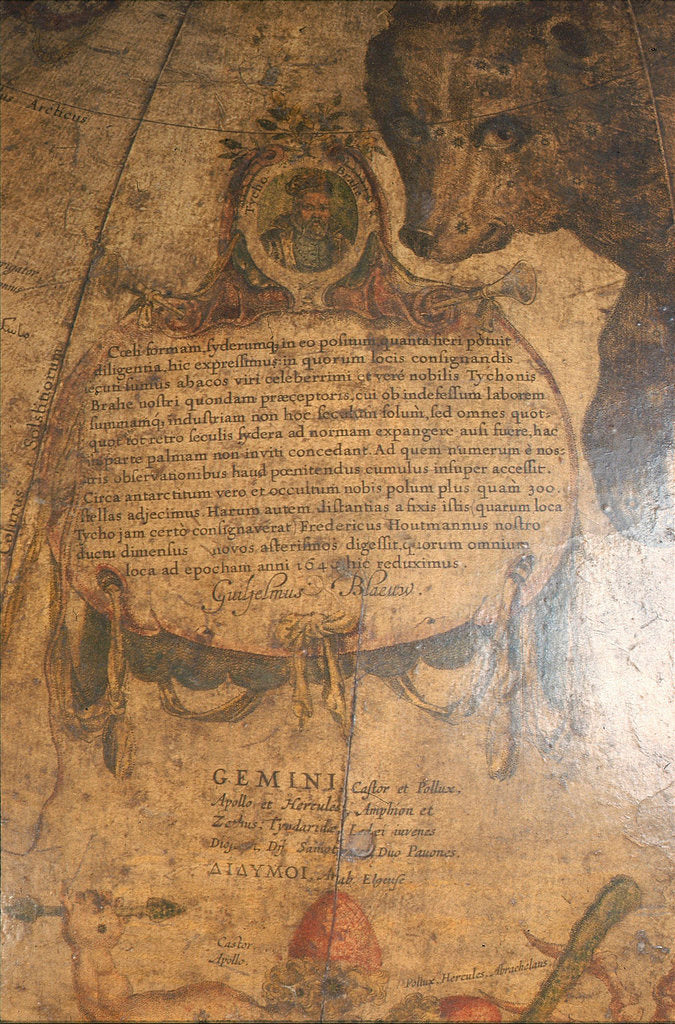 lus Arcticus
Tycho Brahe
Cœli formam, syderumq; in eo positum quanta fieri potuit
diligentia, hic expressimus: in quorum locis consignandis
secuti sumus abacos viri celeberrimi et veré nobilis Tychonis
Brahe nostri quondam præceptoris, cui ob indefessum laborem
summamq; industriam non hoc seculum solum, sed omnes quot-
quot tot retro seculis sydera ad normam expangere ausi fuere, hac
in parte palmam non inviti concedant. Ad quem numerum è nos-
tris observationibus haud pœnitendus cumulus insuper accessit.
Circa antarcticum vero et occultum nobis polum plus quam 300.
stellas adjecimus. Harum autem distantias a fixis istis (quarum loca
Tycho jam certò consignaverat) Fredericus Houtmannus nostro
ductu dimensus novos asterismos digessit, quorum omnium
loca ad epocham anni 1640 hic reduximus.
Guiljelmus Blaeuw.
Colurus Solstitiorum
GEMINI, Castor et Pollux.
Apollo et Hercules, Amphion et
Zethus. Tyndaridæ, Ledæi iuvenes
Duo Pavones.
ΔΙΔΥΜΟΙ. Arab. Elgeuse.
Castor
Apollo.
Pollux. Hercules. Abrachelaus.